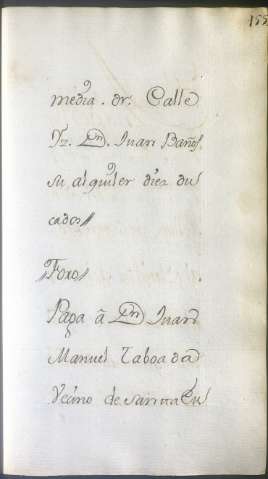 155
media. dr. Calle
Yz. Dn. Juan Baños.
su alquiler diez du
cados//
//Foro//
Paga â Dn Juan
Manuel Taboada
Vecino de santta Eul